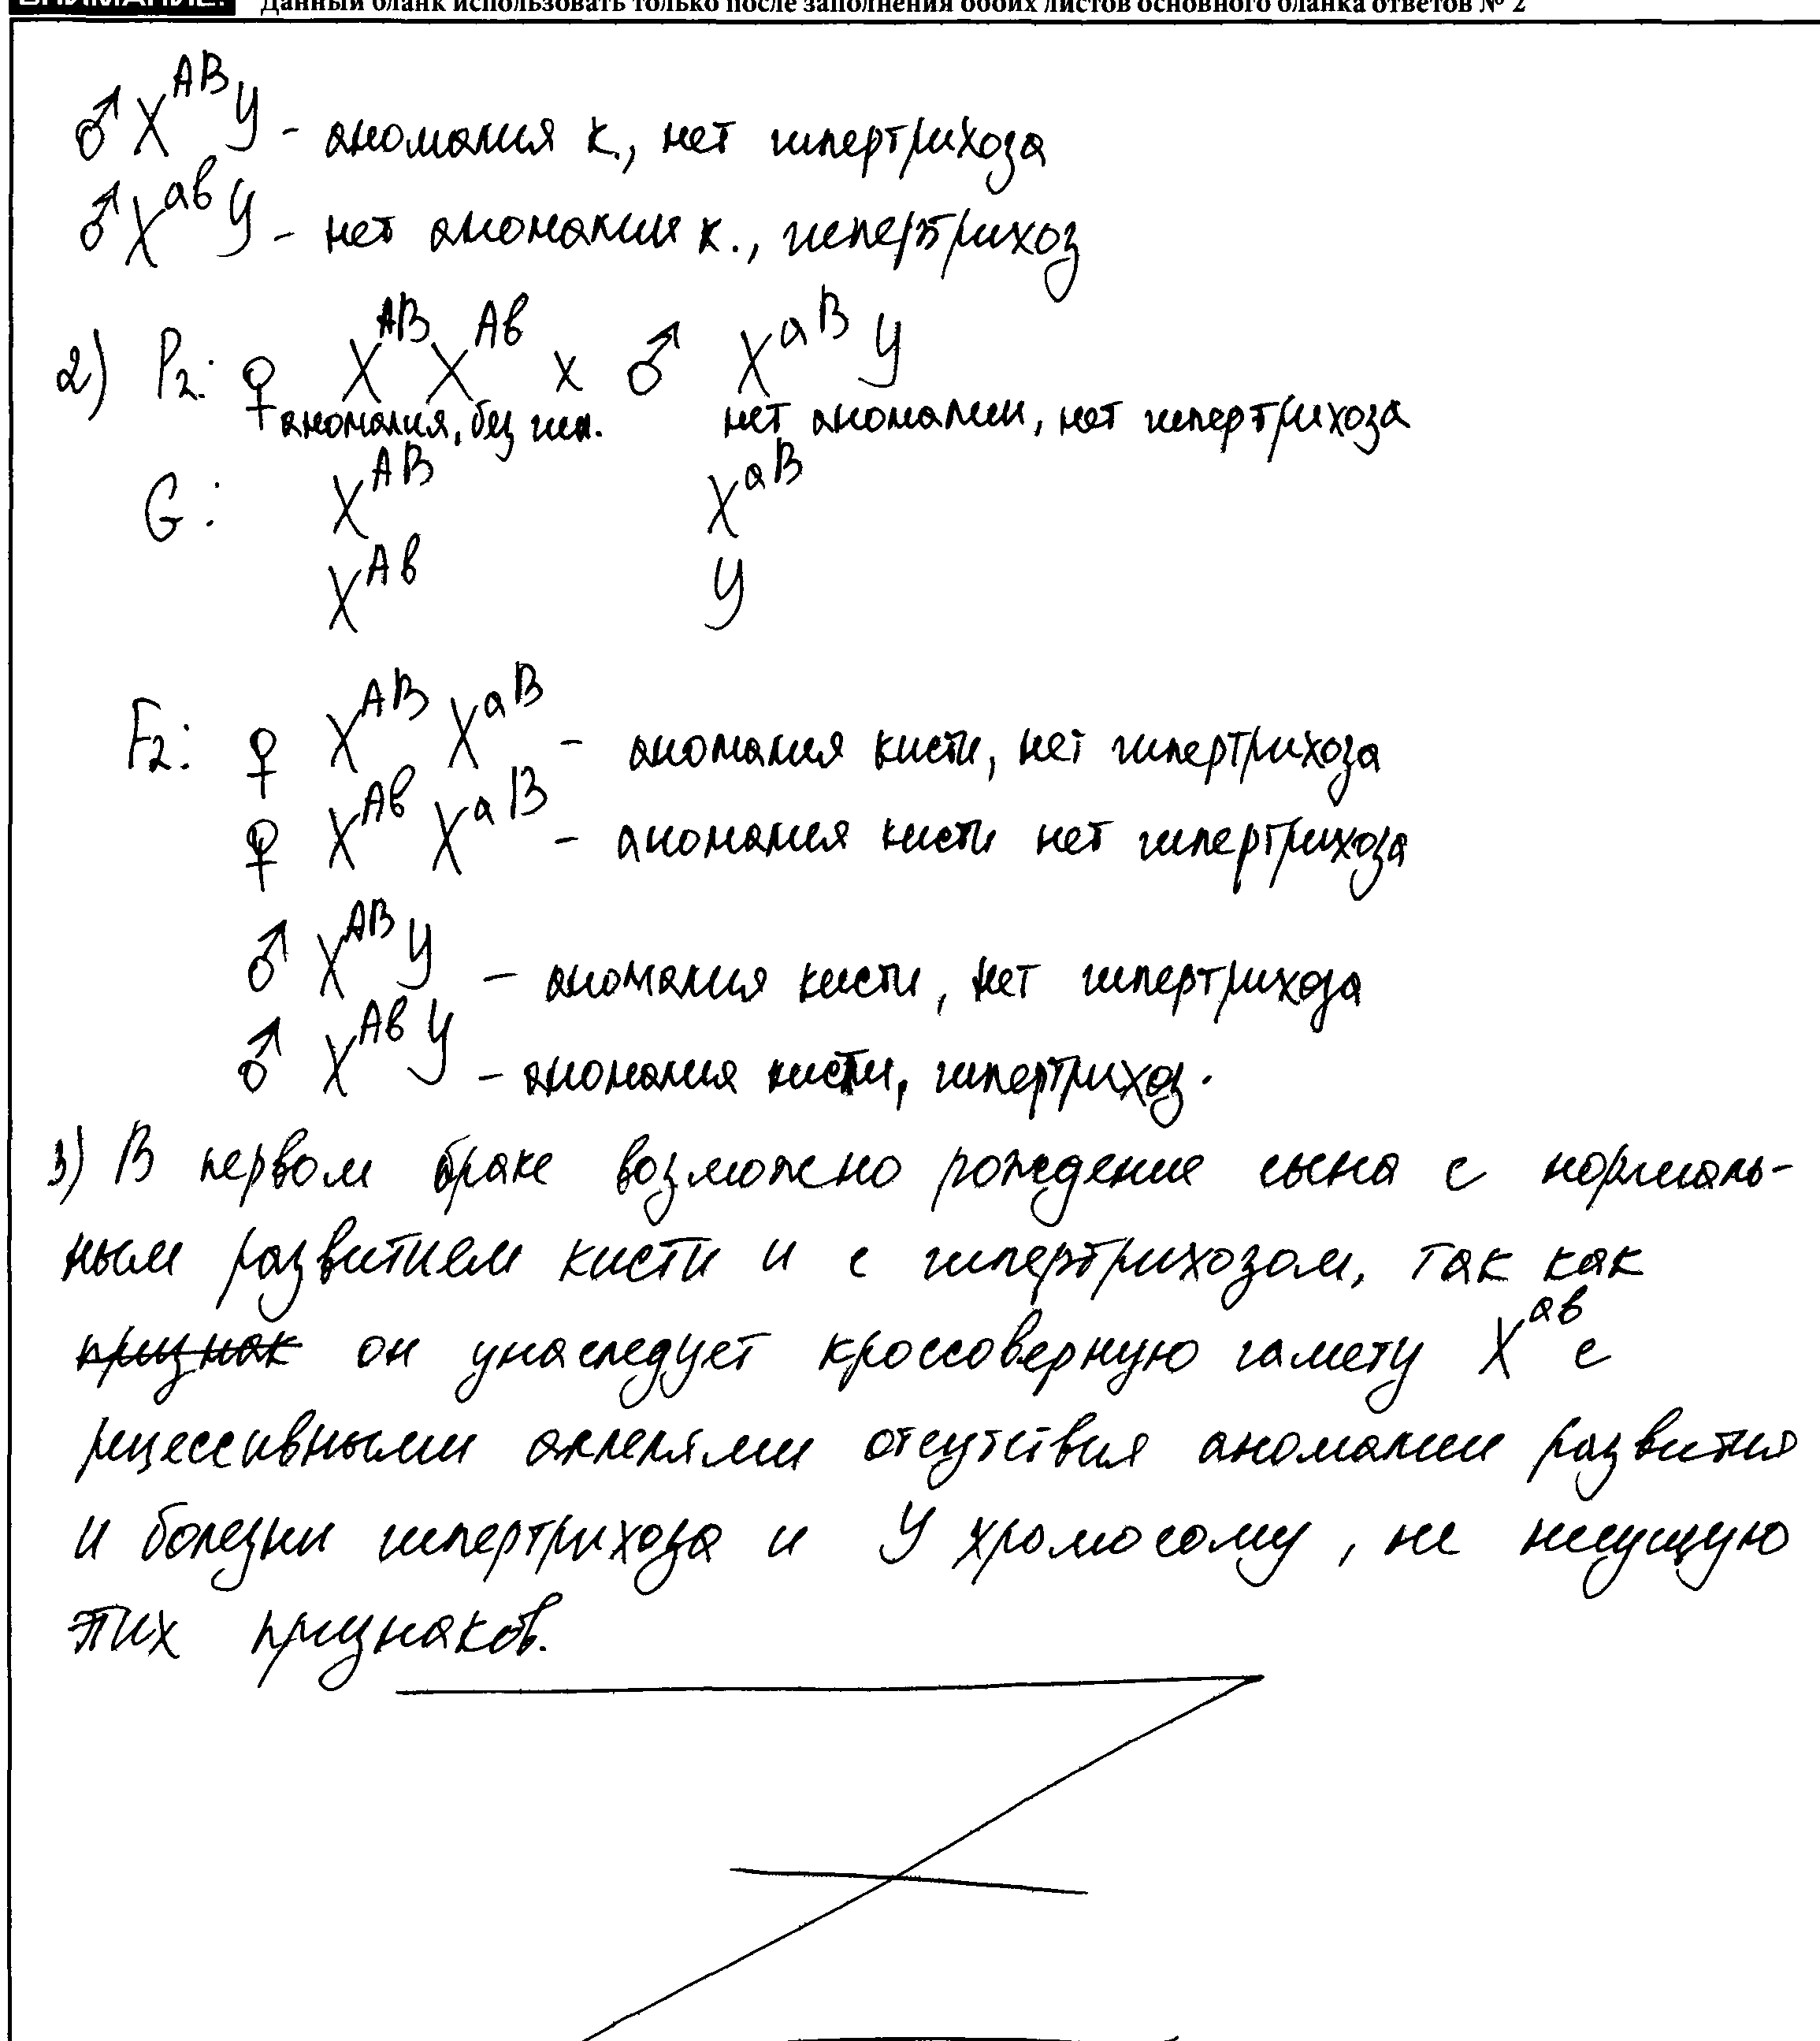 Данный бланк использовать только после заполнения обоих листов основного бланка ответов № 2
♂ X^AB Y - аномалия к., нет гипертрихоза
♂ X^ав Y - нет аномалии к., гипертрихоз
2) P₂: ♀ X^AB X^Ав x ♂ X^aB Y
аномалия, без гип. нет аномалии, нет гипертрихоза
G: X^AB X^aB
X^Ав Y
F₂: ♀ X^AB X^aB - аномалия кисти, нет гипертрихоза
♀ X^Ав X^aB - аномалия кисти нет гипертрихоза
♂ X^AB Y - аномалия кисти, нет гипертрихоза
♂ X^Ав Y - аномалия кисти, гипертрихоз.
3) В первом браке возможно рождение сына с нормаль-
ным развитием кисти и с гипертрихозом, так как
признак он унаследует кроссоверную гамету X^ав с
рецессивными аллелями отсутствия аномалии развития
и болезни гипертрихоза и У хромосому, не несущую
этих признаков.